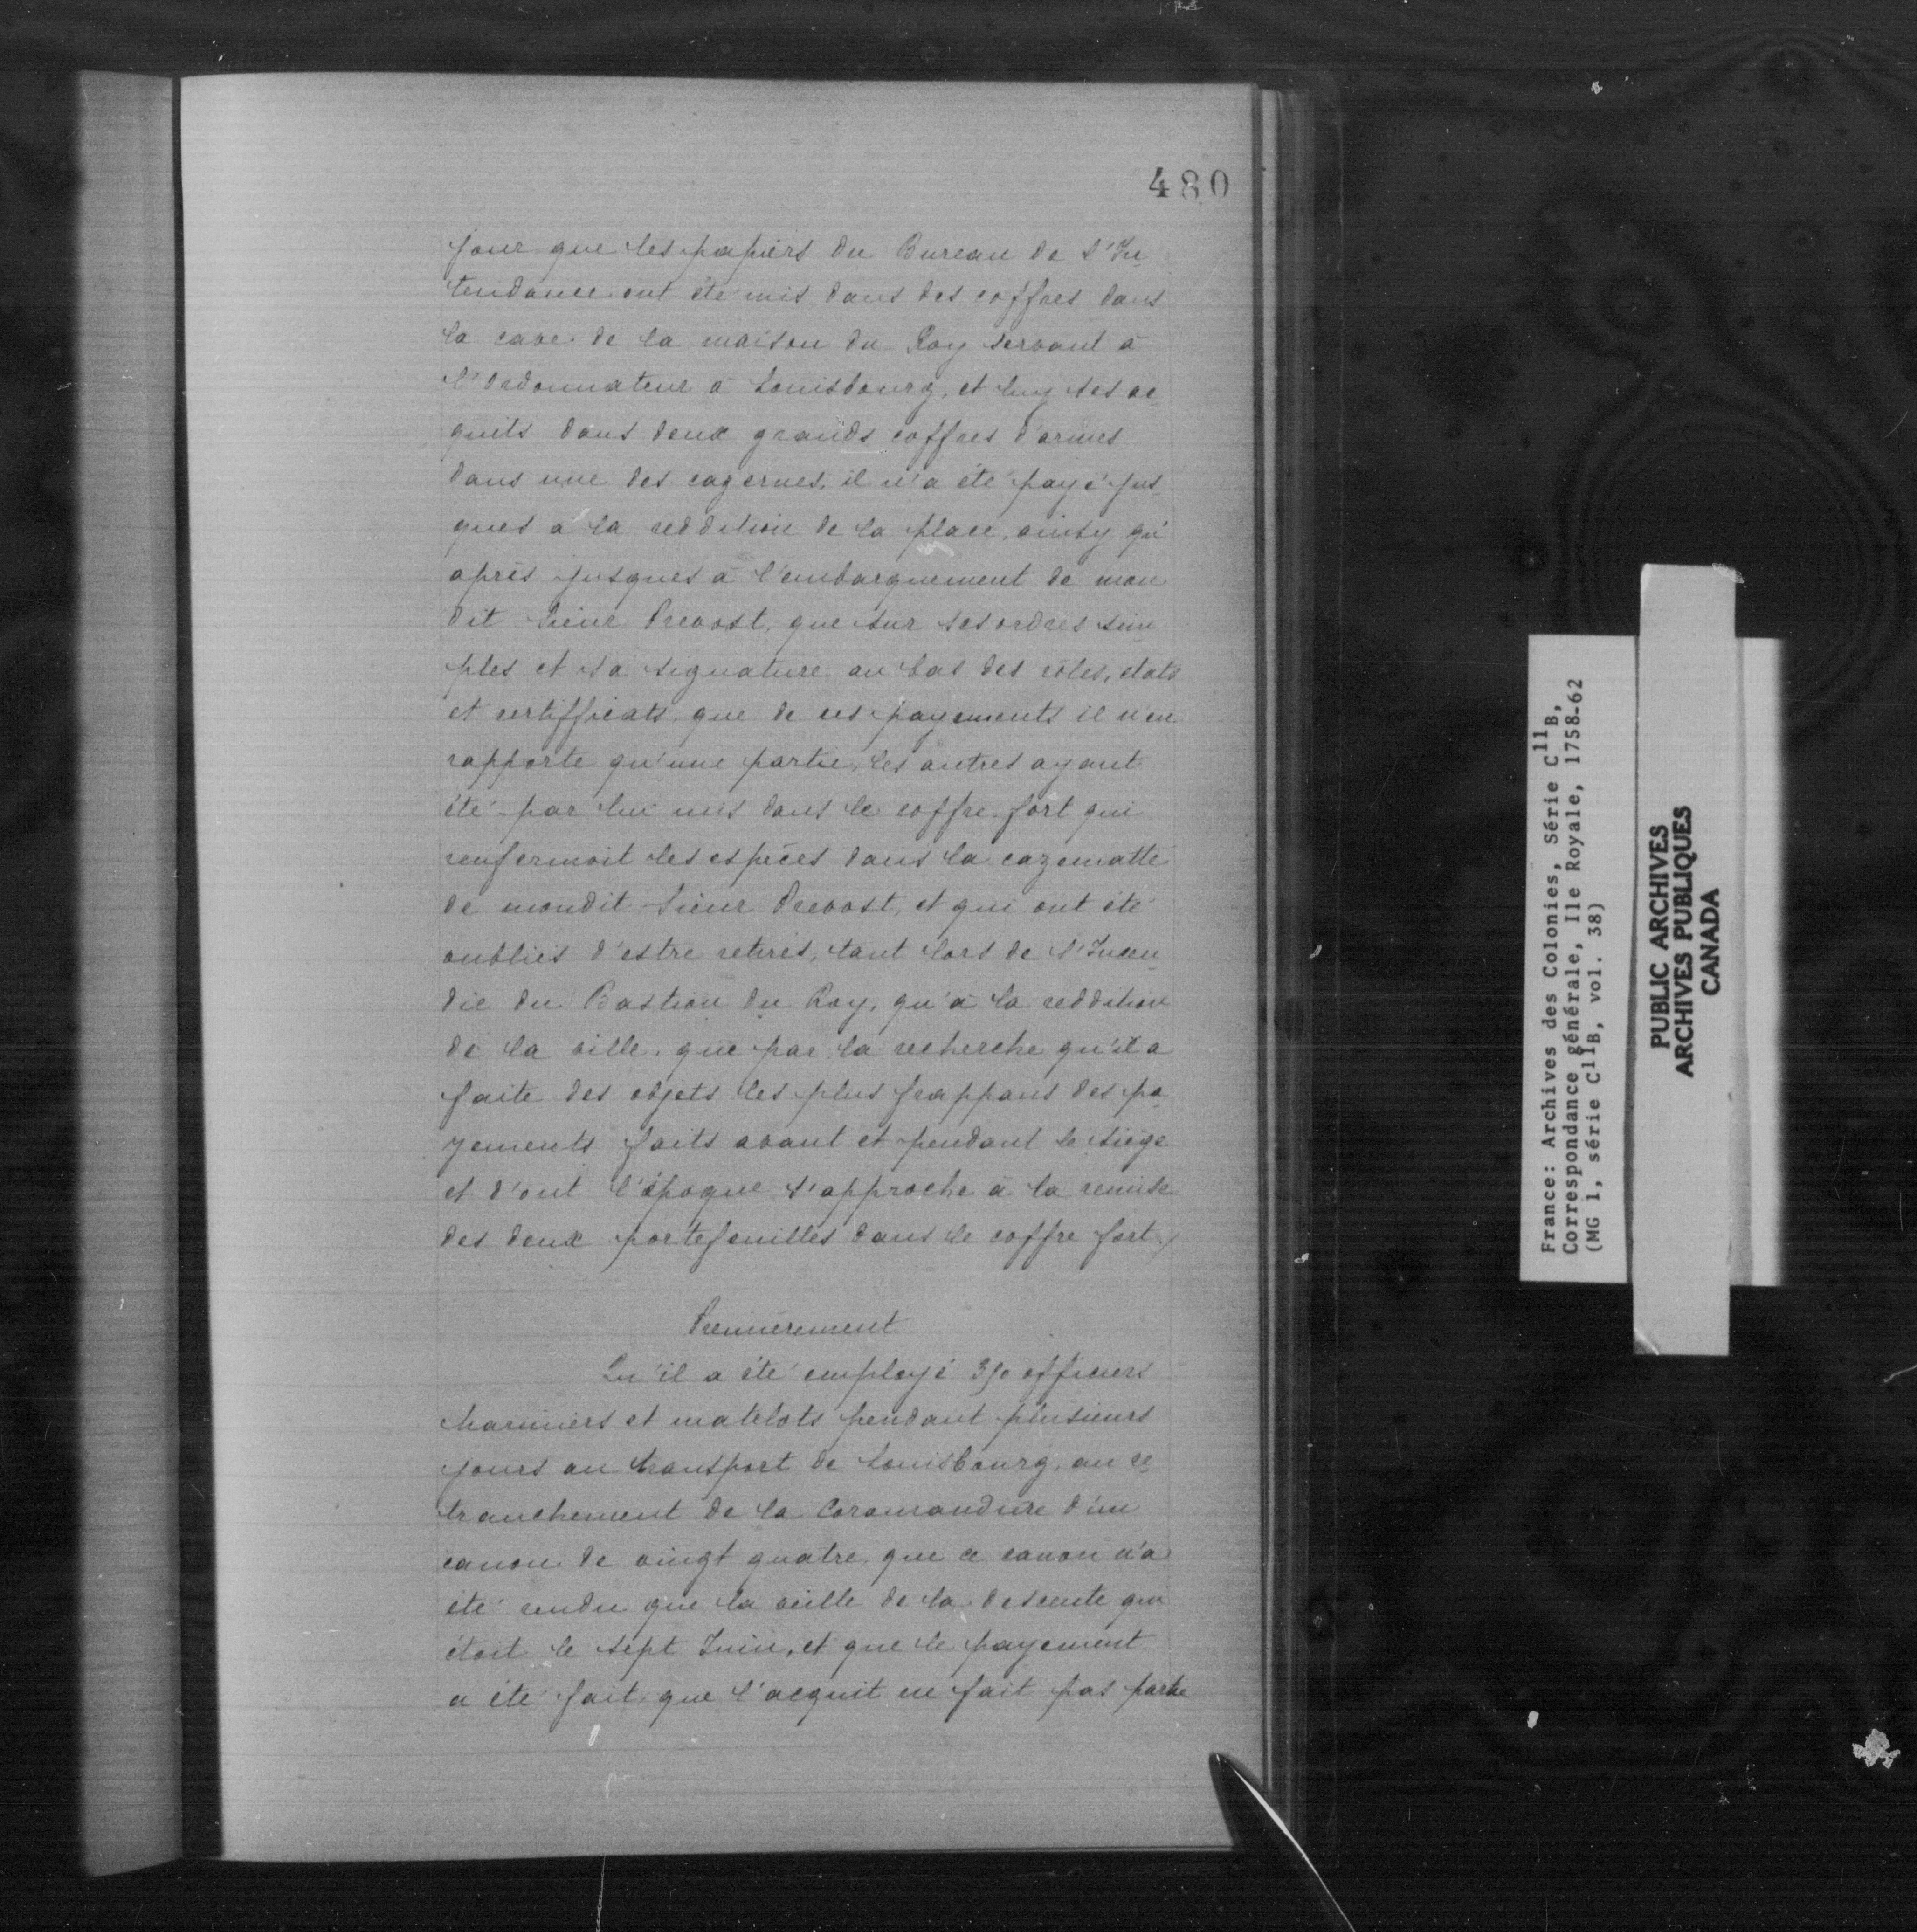 480
jour que les papiers du Bureau de l'In
tendance ont été mis dans des coffres dans
la cave de la maison du Roy servant à
l'Ordonnateur à Louisbourg, et luy ses ac
quits dans deux grands coffres d'armes
dans une des cazernes, il n'a été payé jus
ques à la reddition de la place, ainsy qu'
après jusques à l'embarquement de mon
dit Sieur Prevost, que sur ses ordres sim
ples et sa signature au bas des rôles, etats
et certifficats, que de ces payements il n'en
rapporte qu'une partie, les autres ayant
été par lui mis dans le coffre fort qui
renfermoit les espèces dans la cazematte
de mondit Sieur Prevost, et qui ont été
oubliés d'estre retirés, tant lors de l'Incen
die du Bastion du Roy, qu'à la reddition
de la ville, que par la recherche qu'il a
faite des objets les plus frappans des pa
yements faits avant et pendant le siège
et d'ont l'époque s'approche à la remise
des deux portefeuilles dans le coffre fort./
Premièrement
Qu'il a été employé 350 officiers
Mariniers et matelots pendant plusieurs
jours au transport de Louisbourg, au re
tranchement de la Coromandière d'un
canon de vingt quatre, que ce canon n'a
été rendu que la veille de la descente qui
étoit le sept Juin, et que le payement
a été fait, que l'acquit ne fait pas partie
France: Archives des Colonies, Série C11B,
Correspondance générale, Ile Royale, 1758-62
(MG 1, série C11B, vol. 38)
PUBLIC ARCHIVES
ARCHIVES PUBLIQUES
CANADA